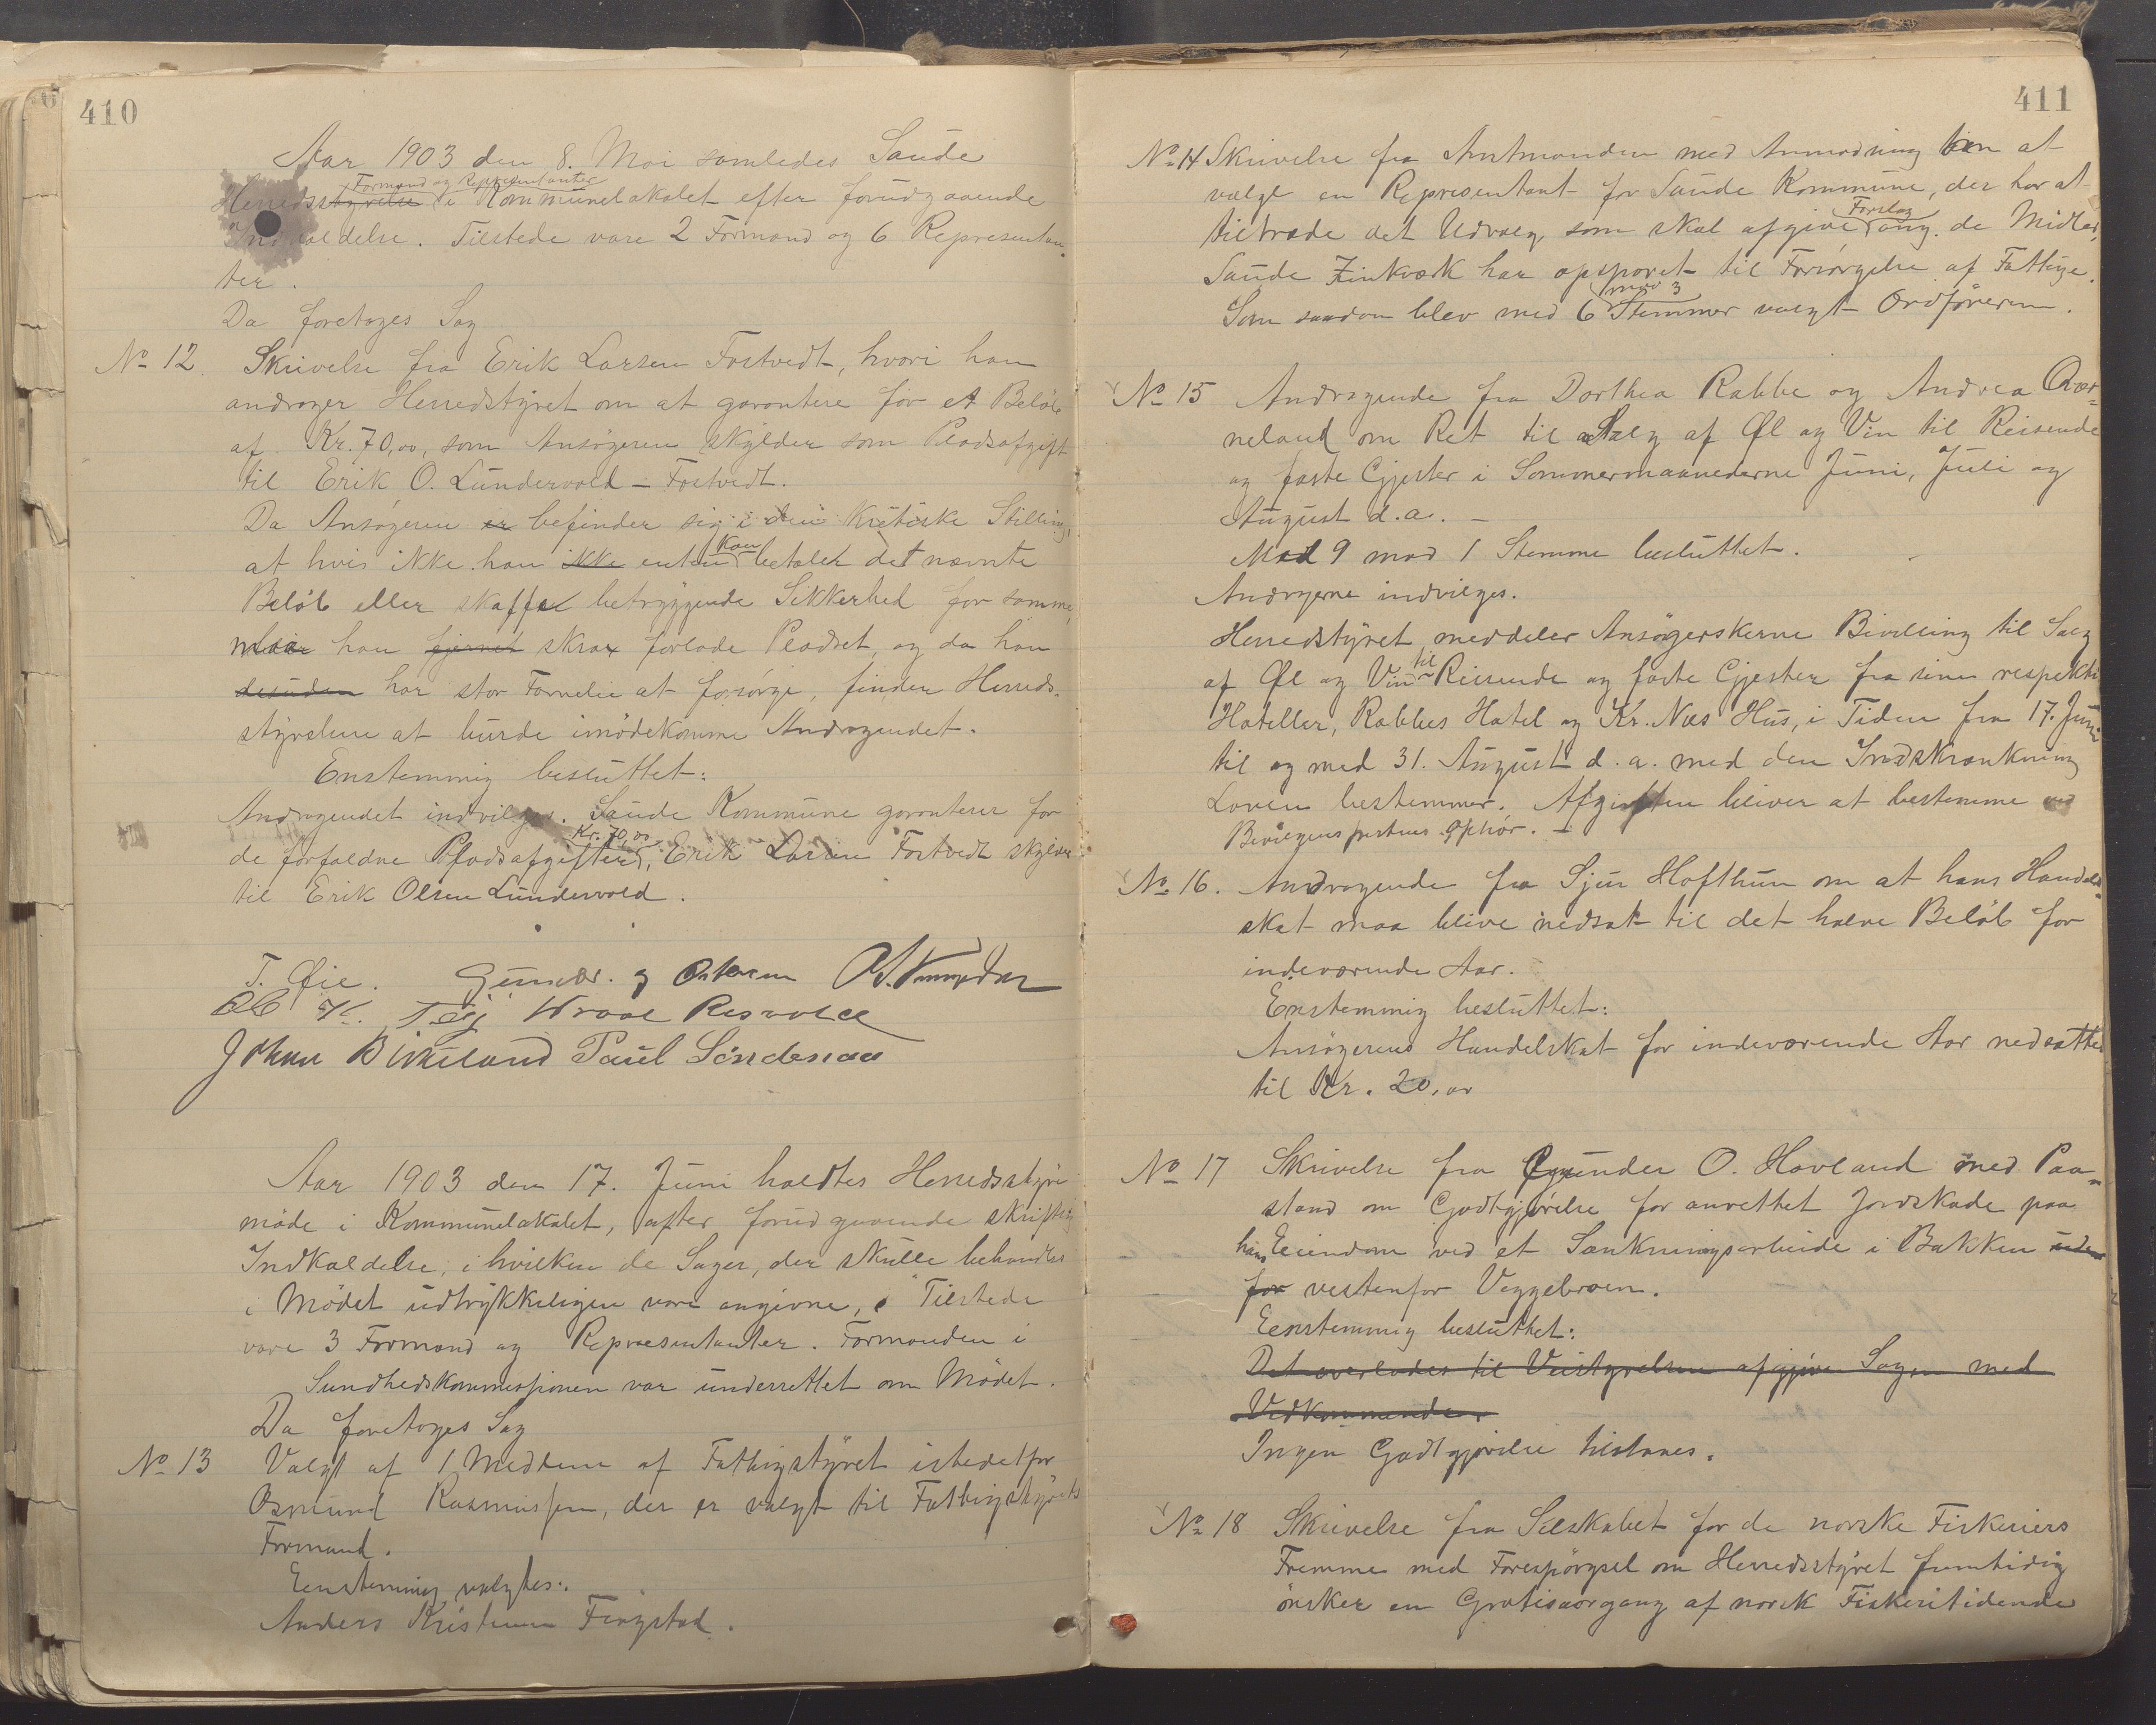 410
Aar 1903 den 8. Mai samledes Saude
Formænd og Repræsentanter
Herredsstyrelse i Kommunelokalet efter forudgaaende
Indkaldelse. Tilstede vare 2 Formænd og 6 Represen­tan
ter.
Da foretoges Sag
No 12. Skrivelse fra Erik Larsen Fostvedt, hvori han
androger Herredstyret om at garantere for et Beløb
af Kr. 70,00, som Ansøgeren skylder som Pladsafgift
til Erik O. Lundervold - Fostvedt.
Da Ansøgeren er befinder sig i den Kritiske Stilling,
at hvis ikke han ikke enten kan betaler det nævnte
Beløb eller skaffe betryggende Sikkerhed for samme,
maa han fjernes strax forlade Pladset, og da han
desuden har stor Familie at forsørge, finder Herreds-
styrelsen at burde imødekomme Andragendet.
Enstemmig besluttet:
Andragendet indvilges. Saude Kommune garanterer for
de forfaldne Pladsafgifter, Kr. 70,00 Erik Larsen Fostvedt skylder
til Erik Olsen Lundervold.
T. Øie. Gunder
Johan Birkeland Paul Söndenaa
Aar 1903 den 17. Juni holdtes Herredsstyre
møde i Kommunelokalet, efter forudgaaende skriftlig
Indkaldelse, i hvilken de Sager, der skulle behandles
i Mødet udtrykkeligen vare angivne, Tilstede
vare 3 Formænd og Repræsentanter. Formanden i
Sundhedskommissionen var underrettet om Mødet.
Da foretoges Sag
No 13 Valgt af 1 Medlem af Fattigstyret istedetfor
Osmund Rasmussen, der er valgt til Fattigstyrets
Formand.
Eenstemmig valgtes:
Anders Kristensen Fingstad.
411
No 14 Skrivelse fra Amtmanden med Anmodning om at
vælge en Representant for Saude Kommune, der har at
tiltræde det Udvalg, som skal afgive Forslag ang. de Midler,
Saude Zinkværk har opsparet til Forsørgelse af Fattige.
Som saadan blev med 6 mod 3 Stemmer valgt Ordføreren.
No 15 Andragende fra Dorthea Rabbe og Andrea Qvær-
neland om Ret til Salg af Øl og Vin til Reisende
og faste Gjester i Sommermaanederne Juni, Juli og
August d.a. -
Med 9 mod 1 Stemme besluttet.
Andragerne indvilges.
Herredstyret meddeler Ansøgerskerne Bevilling til Salg
af Øl og Vin til Reisende og faste Gjester fra sine respektive
Hoteller, Rabbes Hotel og Kr. Næs Hus, i Tiden fra 17. Juni
til og med 31. August d. a. med den Indskrænkning
Loven bestemmer. Afgiften bliver at bestemme ved
Bevilgens fristens Ophör. -
No 16. Andragende fra Sjur Hofthun om at hans Handels-
skat maa blive nedsat til det halve Beløb for
indeværende Aar.
Enstemmig besluttet:
Ansøgerens Handelskat for indeværende Aar nedsættes
til Kr. 20,00
No 17 Skrivelse fra Gunder O. Havland med Paa-
stand om Godtgjørelse for anrettet Jordskade paa
hans Eiendom ved et Sænkningsarbeide i Bakken uden
for vestenfor Veggebroen.
Eenstemmig besluttet:
Det overlades til Veistyrelsen afgjøre Sagen med
Vedkommende.
Ingen Godtgjørelse tilstaaes.
No 18 Skrivelse fra Selskabet for de norske Fiskeriers
Fremme med Forespørgsel om Herredsstyret fremtidig
ønsker en Gratisaargang af norsk Fiskeritidende